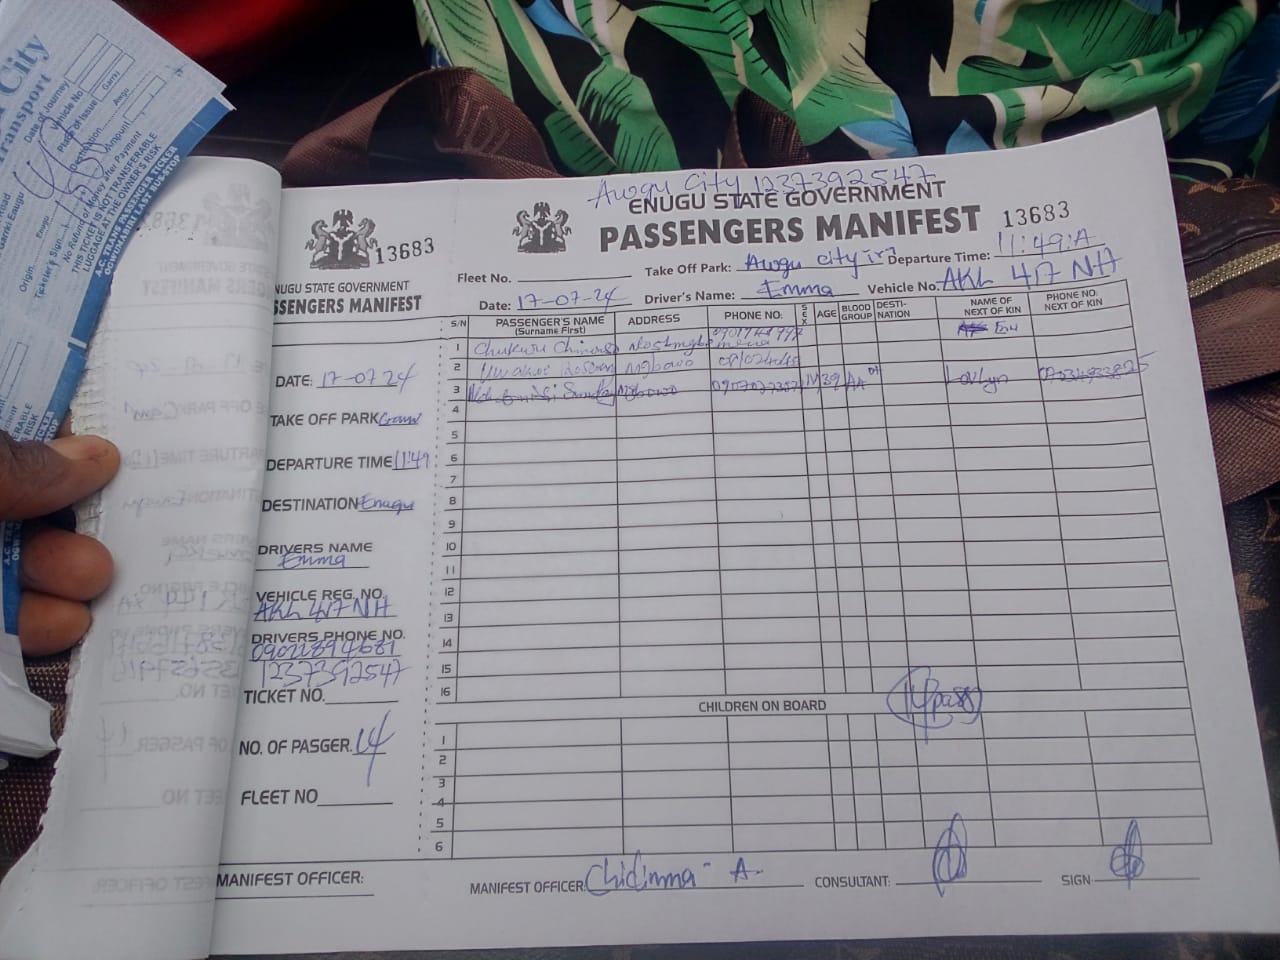 City
Transport
Date of Journey
Vehicle No
Place of Issue
Garriki
Awgu
Amount
Enugu
Origin
Ticketer's Sign
No Refund of Money after Payment
THIS TICKET IS NOT TRANSFERABLE
LUGGAGE AT THE OWNER'S RISK
A.C. TRANS PASSENGER TICKET
OGWUAITURU LAST BUS-STOP
13683
NUGU STATE GOVERNMENT
SSENGERS MANIFEST
DATE: 17-07 24
TAKE OFF PARK
DEPARTURE TIME 11:49
DESTINATION Enugu
DRIVERS NAME
Emma
VEHICLE REG. NO.
AKL 417 NH
DRIVERS PHONE NO.
09021894681
1237392547
TICKET NO.
NO. OF PASGER. 14
FLEET NO
MANIFEST OFFICER:
Awgu City 1237392547
ENUGU STATE GOVERNMENT
PASSENGERS MANIFEST 13683
Fleet No. Take Off Park: Awgu City Departure Time: 11:49:A
Date: 17-07-24 Driver's Name: Emma Vehicle No. AKL 417 NH
S/N PASSENGER'S NAME (Surname First) ADDRESS PHONE NO: SEX AGE BLOOD GROUP DESTI-NATION NAME OF NEXT OF KIN PHONE NO. NEXT OF KIN
1 Chukwu
2
3 Sunday M 39 AA
4
5
6
7
8
9
10
11
12
13
14
15
16
14 pass
CHILDREN ON BOARD
1
2
3
4
5
6
MANIFEST OFFICER: Chidimma - A. CONSULTANT: SIGN